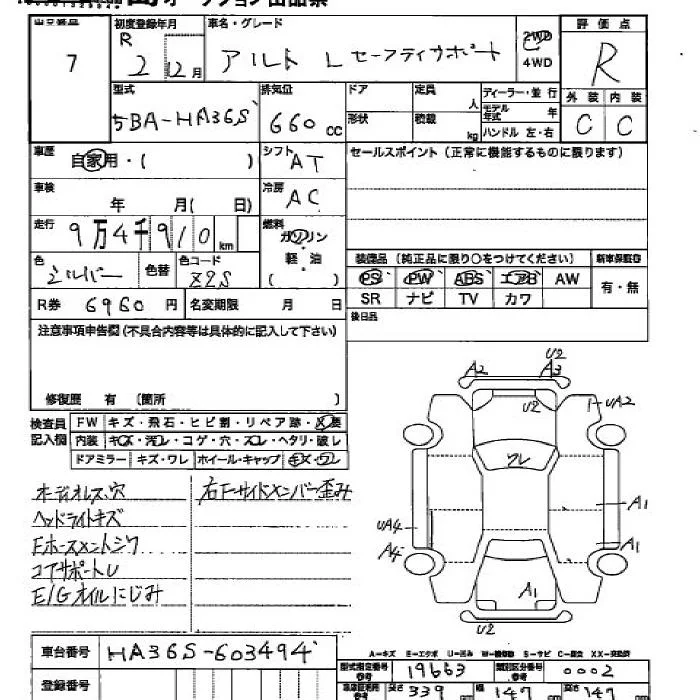 オークション出品票
出品番号 初度登録年月 車名・グレード 評価点
7 R 2 12月 アルト L セーフティサポート 2WD 4WD R
型式 排気量 ドア 定員 人 ディーラー・並行 外装 内装
5BA-HA36S 660 cc 形状 積載 kg モデル年式 年 ハンドル 左・右 C C
車歴 自家用・( ) シフト AT セールスポイント(正常に機能するものに限ります)
車検 年 月( 日) 冷房 AC
走行 9万4千910km 燃料 ガソリン・軽油 ( )
色 シルバー 色替 色コード Z2S 装備品(純正品に限り○をつけてください) 新車保証書
PS PW ABS エアB AW 有・無
R券 6960円 名変期限 月 日 SR ナビ TV カワ
注意事項申告欄(不具合内容等は具体的に記入して下さい) 後日品
修復歴 有 〔箇所 〕
検査員記入欄 FW キズ・飛石・ヒビ割・リペア跡・×要
内装 キズ・汚レ・コゲ・穴・スレ・ヘタリ・破レ
ドアミラー キズ・ワレ ホイール・キャップ キズ・ワレ
オーディオレス、穴 右Fサイドメンバー歪み
ヘッドライトキズ
Fホースメントシワ
コアサポートU
E/Gオイルにじみ
A2 U2 A3
U2 UA2
ワレ
A1
UA4
A4 A1
A1
U2
A-キズ E-エクボ U-凹み W-補修跡 S-サビ C-腐食 XX-交換済
車台番号 HA36S-603494 型式指定番号 19663 類別区分番号 0002
登録番号 長さ 339 幅 147 高さ 147